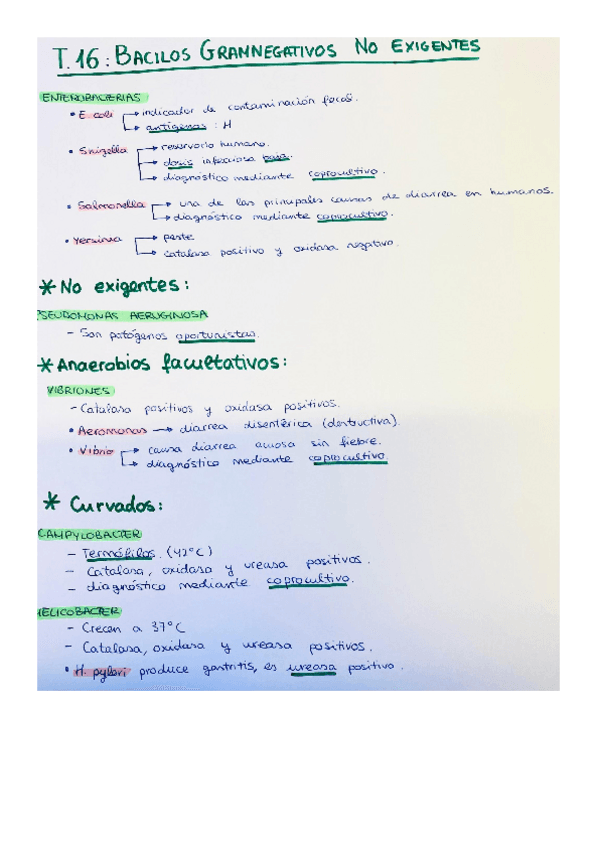 T.16: BACILOS GRAMNEGATIVOS NO EXIGENTES
ENTEROBACTERIAS
• E coli → indicador de contaminación fecal.
→ antígenos : H
• Shigella → reservorio humano.
→ dosis infecciosa baja.
→ diagnóstico mediante coprocultivo.
• Salmonella → una de las principales causas de diarrea en humanos.
→ diagnóstico mediante coprocultivo.
• Yersinia → peste
→ catalasa positivo y oxidasa negativo.
* No exigentes:
PSEUDOMONAS AERUGINOSA
- Son patógenos oportunistas.
* Anaerobios facultativos:
VIBRIONES
- Catalasa positivos y oxidasa positivos.
• Aeromonas → diarrea disentérica (destructiva).
• Vibrio → causa diarrea acuosa sin fiebre.
→ diagnóstico mediante coprocultivo.
* Curvados:
CAMPYLOBACTER
- Termófilos. (42°C)
- Catalasa, oxidasa y ureasa positivos.
- diagnóstico mediante coprocultivo.
HELICOBACTER
- Crecen a 37°C
- Catalasa, oxidasa y ureasa positivos.
• H. pylori produce gastritis, es ureasa positivo.